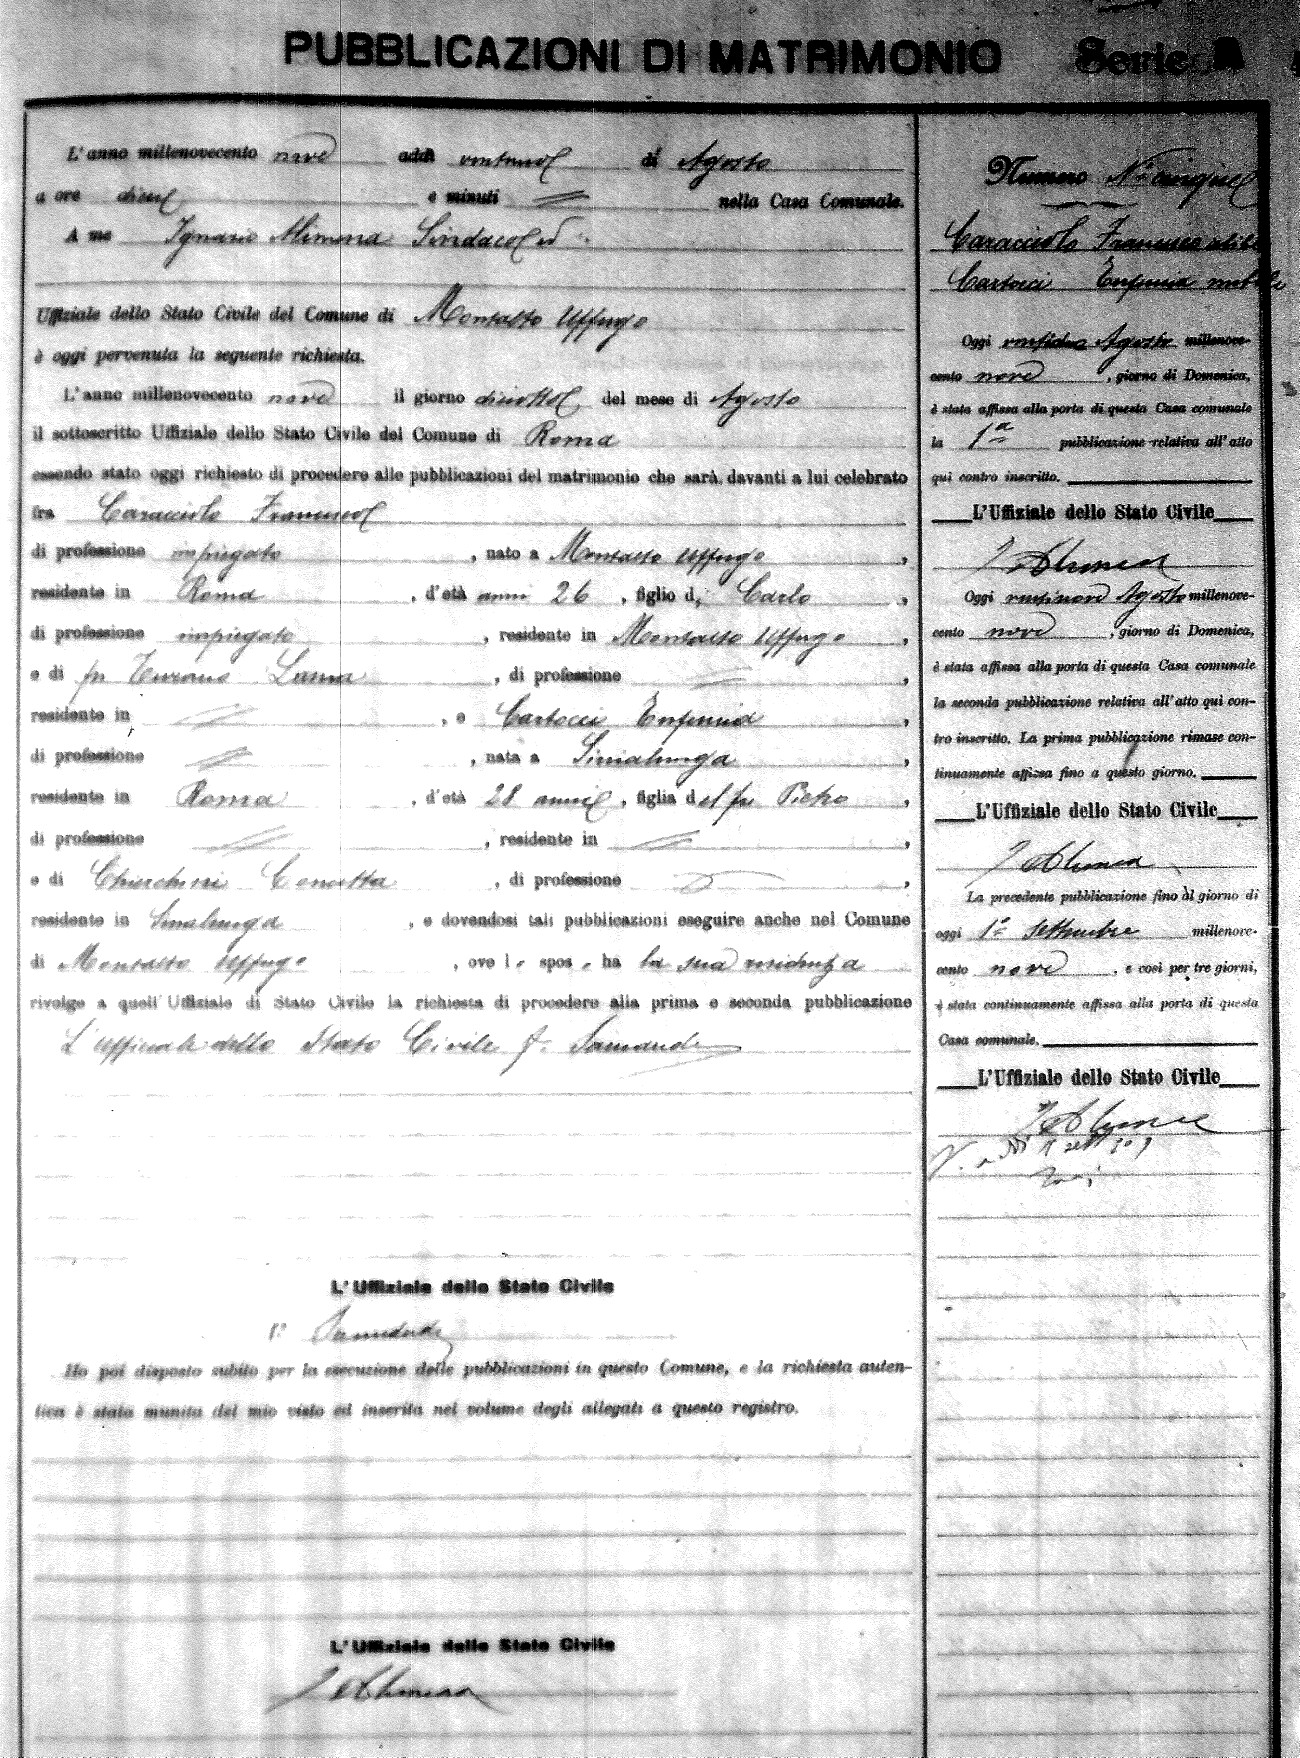 PUBBLICAZIONI DI MATRIMONIO Serie A
L'anno millenovecento nove addì ventuno di Agosto
a ore dieci e minuti = nella Casa Comunale.
A me Ignazio Alimena Sindaco ed
Uffiziale dello Stato Civile del Comune di Montalto Uffugo
è oggi pervenuta la seguente richiesta.
L'anno millenovecento nove il giorno diciotto del mese di Agosto
il sottoscritto Uffiziale dello Stato Civile del Comune di Roma
essendo stato oggi richiesto di procedere alle pubblicazioni del matrimonio che sarà davanti a lui celebrato
fra Caracciolo Francesco
di professione impiegato , nato a Montalto Uffugo ,
residente in Roma , d'età anni 26 , figlio di Carlo ,
di professione impiegato , residente in Montalto Uffugo ,
e di fu Turano , di professione = ,
residente in = , e Cartocci Eufemia ,
di professione = , nata a Sinalunga ,
residente in Roma , d'età 28 anni , figlia del fu Pietro ,
di professione = , residente in = ,
e di Chierchini Concetta , di professione ,
residente in Sinalunga , e dovendosi tali pubblicazioni eseguire anche nel Comune
di Montalto Uffugo , ove lo sposo ha la sua residenza
rivolge a quell'Uffiziale di Stato Civile la richiesta di procedere alla prima e seconda pubblicazione
L'Uffiziale dello Stato Civile f.
L'Uffiziale dello Stato Civile
Ho poi disposto subito per la esecuzione delle pubblicazioni in questo Comune, e la richiesta auten-
tica è stata munita del mio visto ed inserita nel volume degli allegati a questo registro.
L'Uffiziale dello Stato Civile
I Alimena
Numero N° cinque
Caracciolo Francesco celibe
Cartocci Eufemia nubile
Oggi ventidue Agosto millenove-
cento nove , giorno di Domenica,
è stata affissa alla porta di questa Casa comunale
la 1ª pubblicazione relativa all'atto
qui contro inscritto.
L'Uffiziale dello Stato Civile
I Alimena
Oggi ventinove Agosto millenove-
cento nove , giorno di Domenica,
è stata affissa alla porta di questa Casa comunale
la seconda pubblicazione relativa all'atto quì con-
tro inscritto. La prima pubblicazione rimase con-
tinuamente affissa fino a questo giorno.
L'Uffiziale dello Stato Civile
I Alimena
La precedente pubblicazione fino al giorno di
oggi 1° Settembre millenove-
cento nove , e così per tre giorni,
è stata continuamente affissa alla porta di questa
Casa comunale.
L'Uffiziale dello Stato Civile
I Alimena